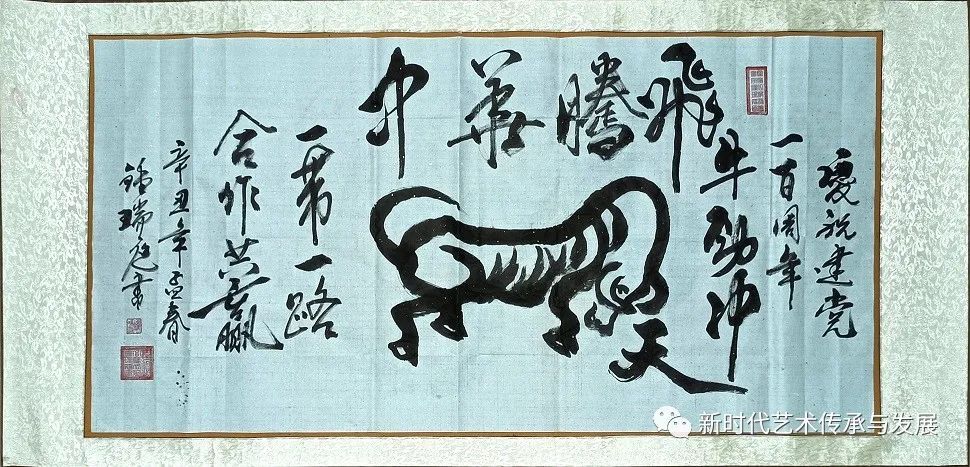 慶祝建党
一百周年
飛騰華中
牛劲冲天
一带一路
合作共赢
辛丑年孟春
瑞庭書
新时代艺术传承与发展